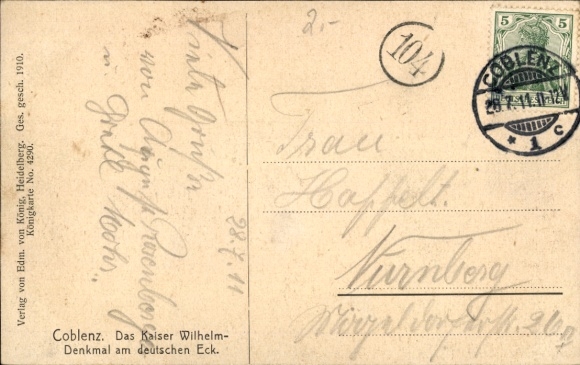 Verlag von Edm. von König, Heidelberg. Ges. gesch. 1910.
Königkarte No. 4290.
Viele Grüße
von August Rosenberger
u.
28. 7. 11
Coblenz. Das Kaiser Wilhelm-
Denkmal am deutschen Eck.
2.-
104
5 5
COBLENZ
28.7.11.11-12V
* 1 c
Frau
Happelt.
Nürnberg